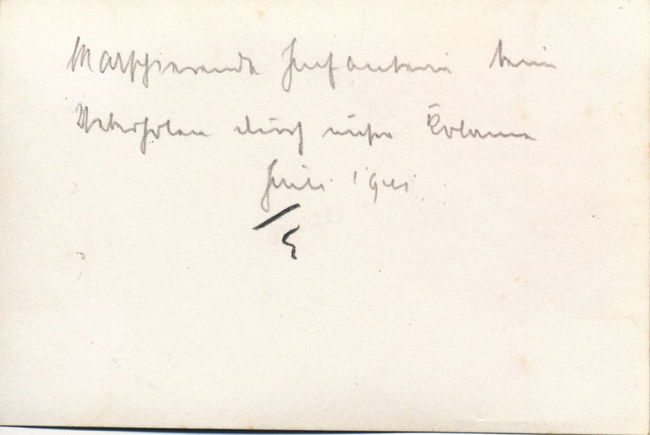 Marschierende Infanterie beim
Ueberholen durch unsre Kolonne
1941.